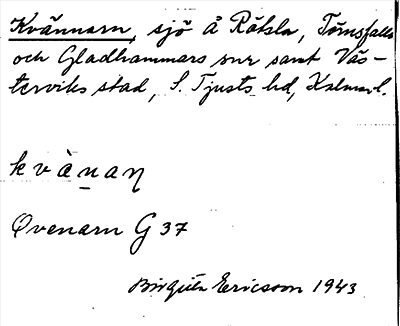 Kvännarn, sjö å Rötsla, Törnsfalls
och Gladhammars snr samt Väs-
terviks stad, S. Tjusts hd, Kalmar l.
kvànaη
Qvenarn G 37
Birgitta Ericsson 1943